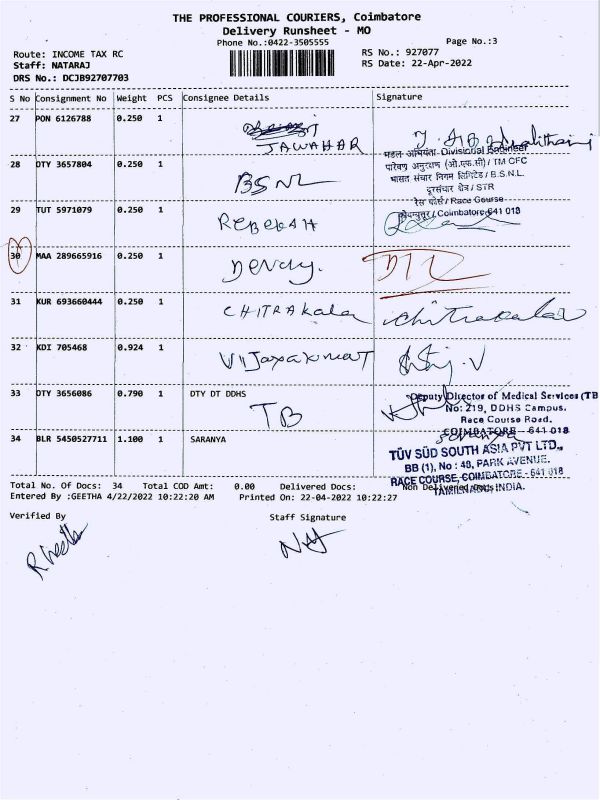 THE PROFESSIONAL COURIERS, Coimbatore
Delivery Runsheet - MO
Phone No.:0422-3505555
Page No.:3
Route: INCOME TAX RC
RS No.: 927077
Staff: NATARAJ
RS Date: 22-Apr-2022
DRS No.: DCJB92707703
S No Consignment No Weight PCS Consignee Details Signature
27 PON 6126788 0.250 1
JAWAHAR
मंडल अभियंता Divisional Engineer
28 DTY 3657804 0.250 1
BSNL
पारेषण अनुरक्षण (ओ.एफ.सी) / TM CFC
भारत संचार निगम लिमिटेड / B.S.N.L.
दूरसंचार क्षेत्र / STR
रेस कोर्स / Race Course
29 TUT 5971079 0.250 1
REBEKAH
कोयम्बुत्तूर / Coimbatore-641 018
30 MAA 289665916 0.250 1
31 KUR 693660444 0.250 1
CHITRAkala Chitrakala
32 KDI 705468 0.924 1
Vijayakumar
33 DTY 3656086 0.790 1 DTY DT DDHS
TB
Deputy Director of Medical Services (TB
No: 219, DDHS Campus.
Race Course Road,
COIMBATORE - 641 018
34 BLR 5450527711 1.100 1 SARANYA
TÜV SÜD SOUTH ASIA PVT LTD.,
BB (1), No : 48, PARK AVENUE.
RACE COURSE, COIMBATORE - 641 018
TAMILNADU, INDIA.
Total No. Of Docs: 34 Total COD Amt: 0.00 Delivered Docs: Non Delivered Docs:
Entered By :GEETHA 4/22/2022 10:22:20 AM Printed On: 22-04-2022 10:22:27
Verified By Staff Signature